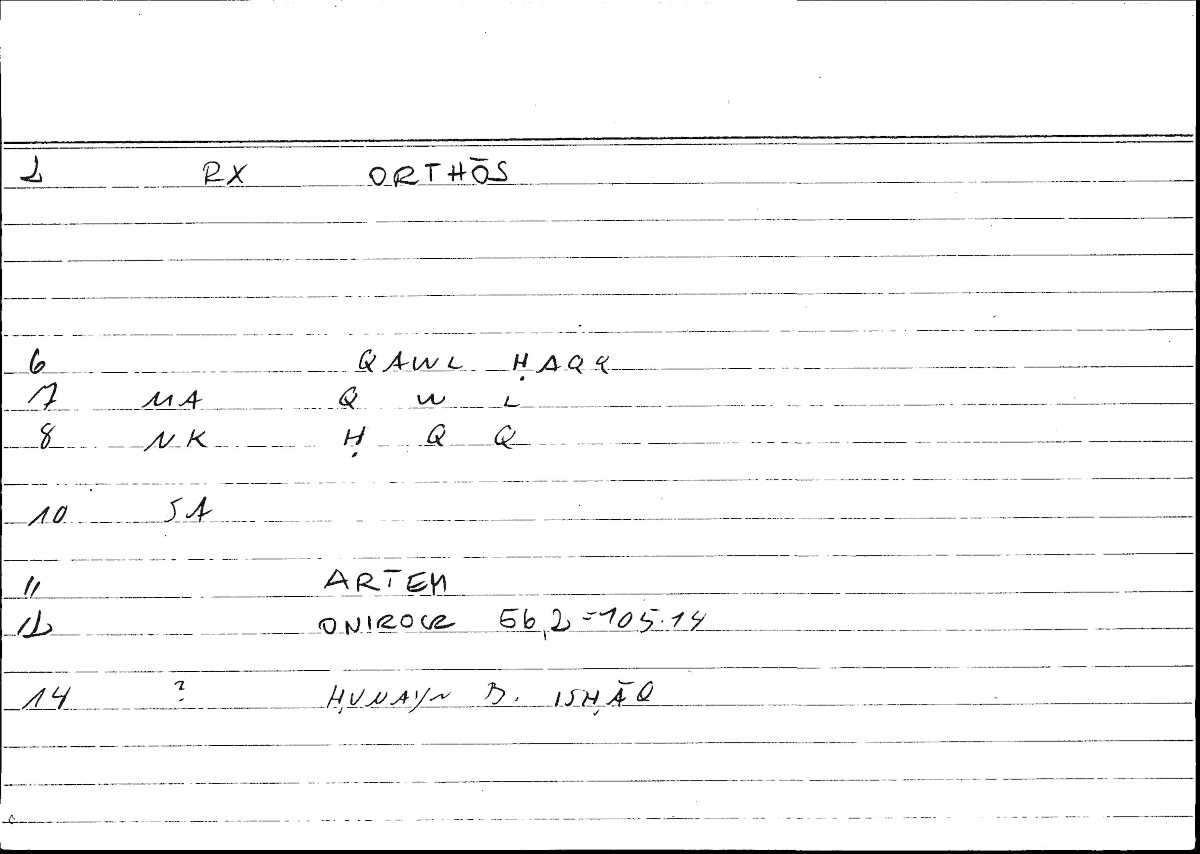 2 RX ORTHŌS
6 QAWL ḤAQQ
7 MA Q W L
8 NK Ḥ Q Q
10 SA
11 ARTEM
12 ONIROCR 56,2=105.14
14 ? ḤUNAYN B. ISḤĀQ